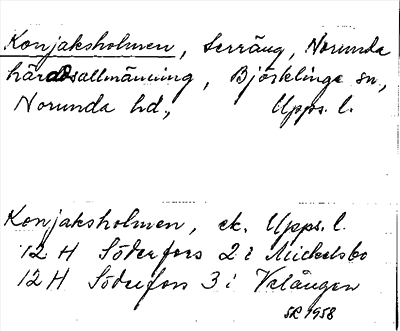 Konjaksholmen, terräng, Norunda
häradsallmänning, Björklinge sn,
Norunda hd, Upps. l.
Konjaksholmen, ek. Upps. l.
12 H Söderfors 2 i Mickelsbo
12 H Söderfors 3 i Vrlängen
SR 1958